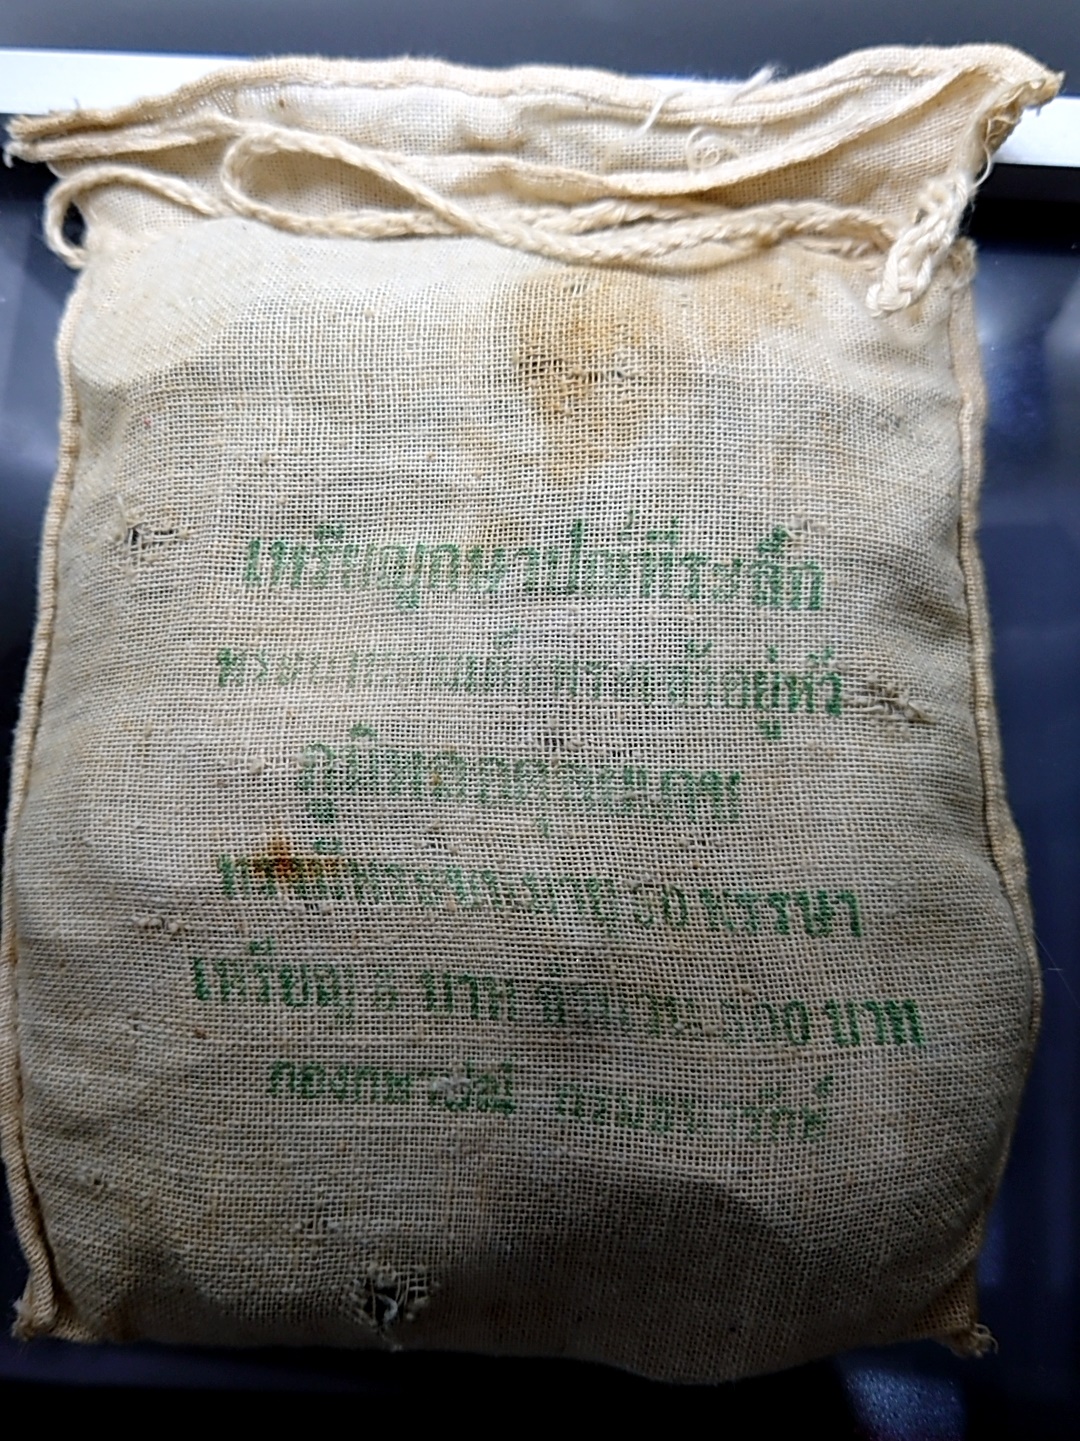 เหรียญกษาปณ์ที่ระลึก
พระบาทสมเด็จพระเจ้าอยู่หัว
ภูมิพลอดุลยเดช
ทรงมีพระชนมายุ พรรษา
เหรียญ บาท จำนวน บาท
กองกษาปณ์ กรมธนารักษ์